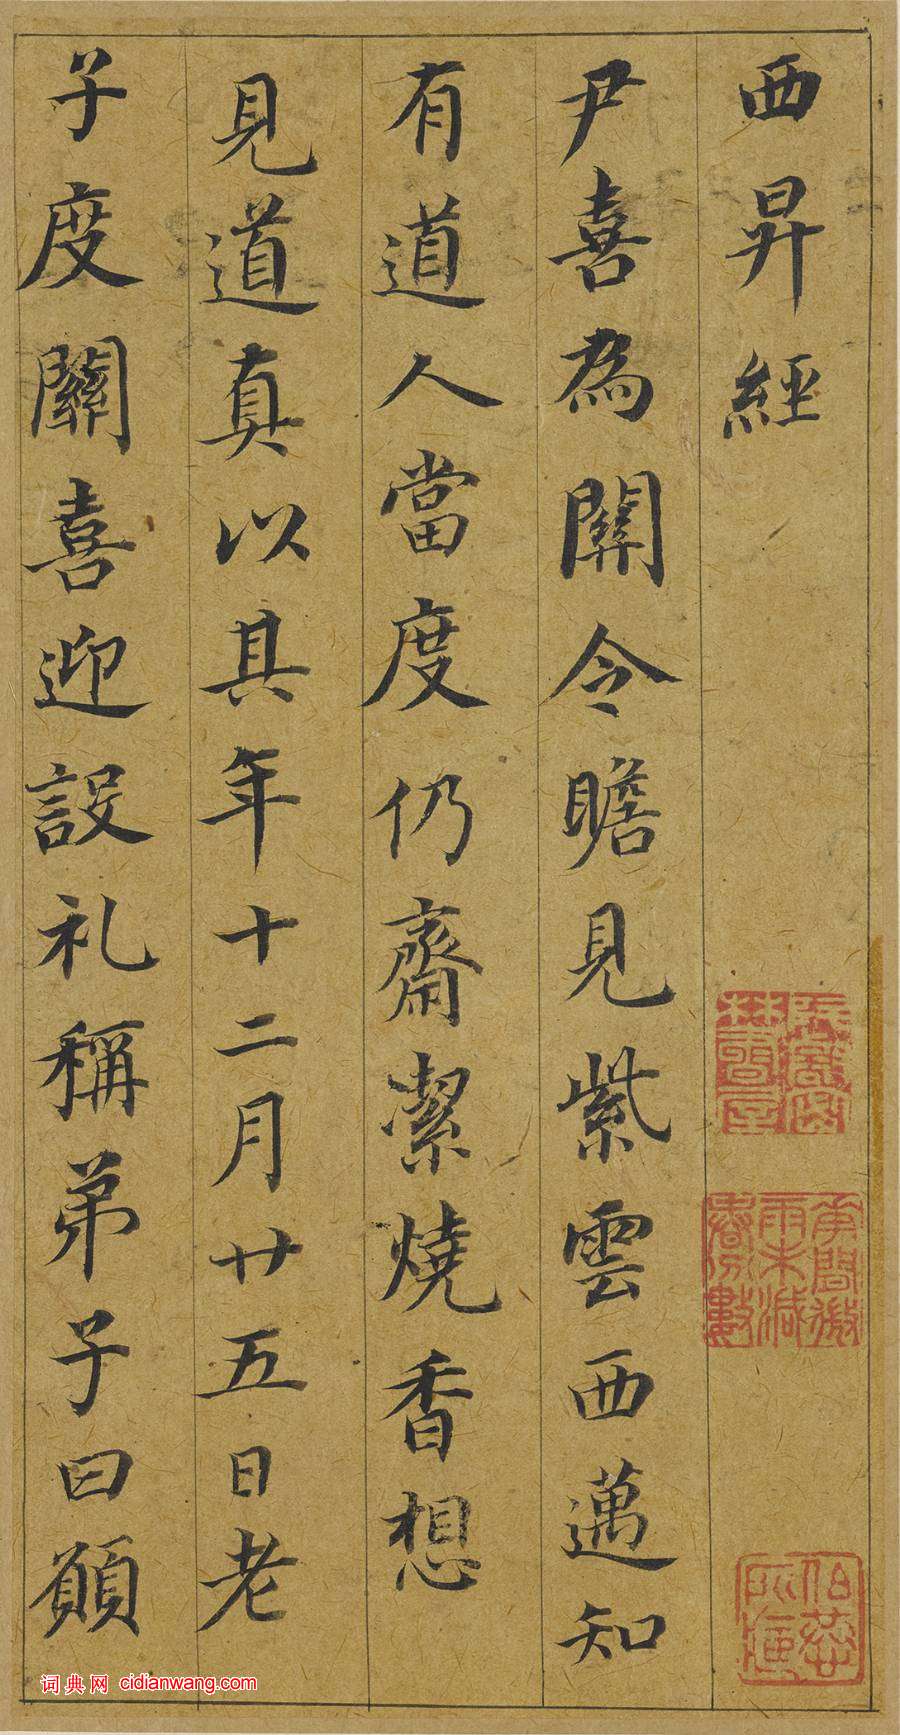 西昇經
尹喜為關令瞻見紫雲西邁知
有道人當度仍齋潔燒香想
見道真以其年十二月廿五日老
子度關喜迎設礼稱弟子曰願
词典网 cidianwang.com